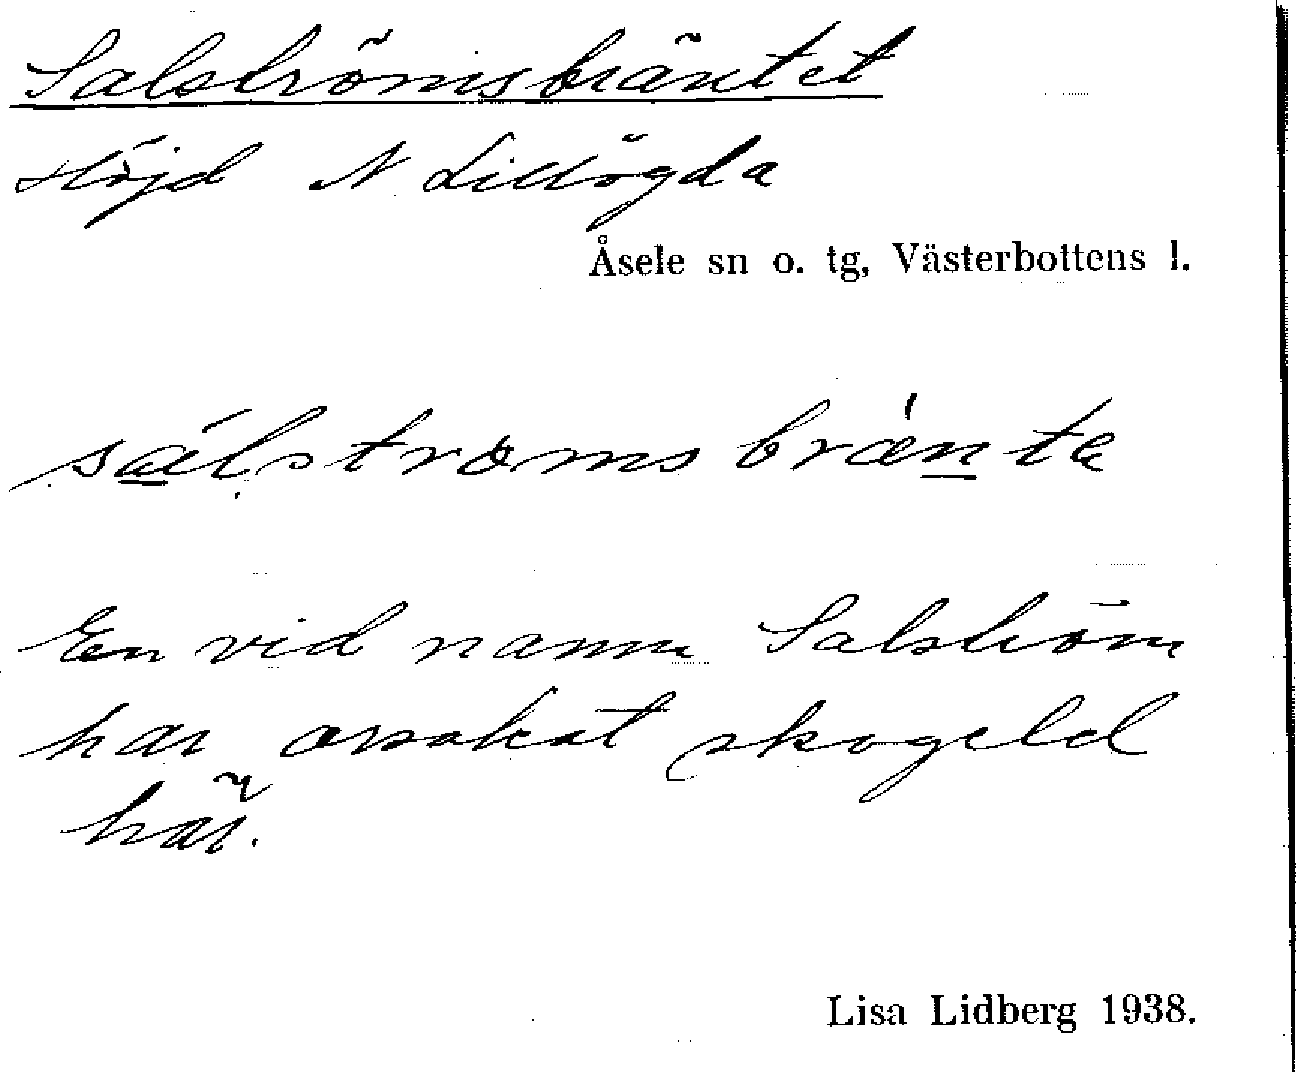 Salströmsbräntet
Höjd N Lillögda
Åsele sn o. tg, Västerbottens l.
sálstromsbrænta
En vid namn Salström
har orsakat skogeld
här.
Lisa Lidberg 1938.